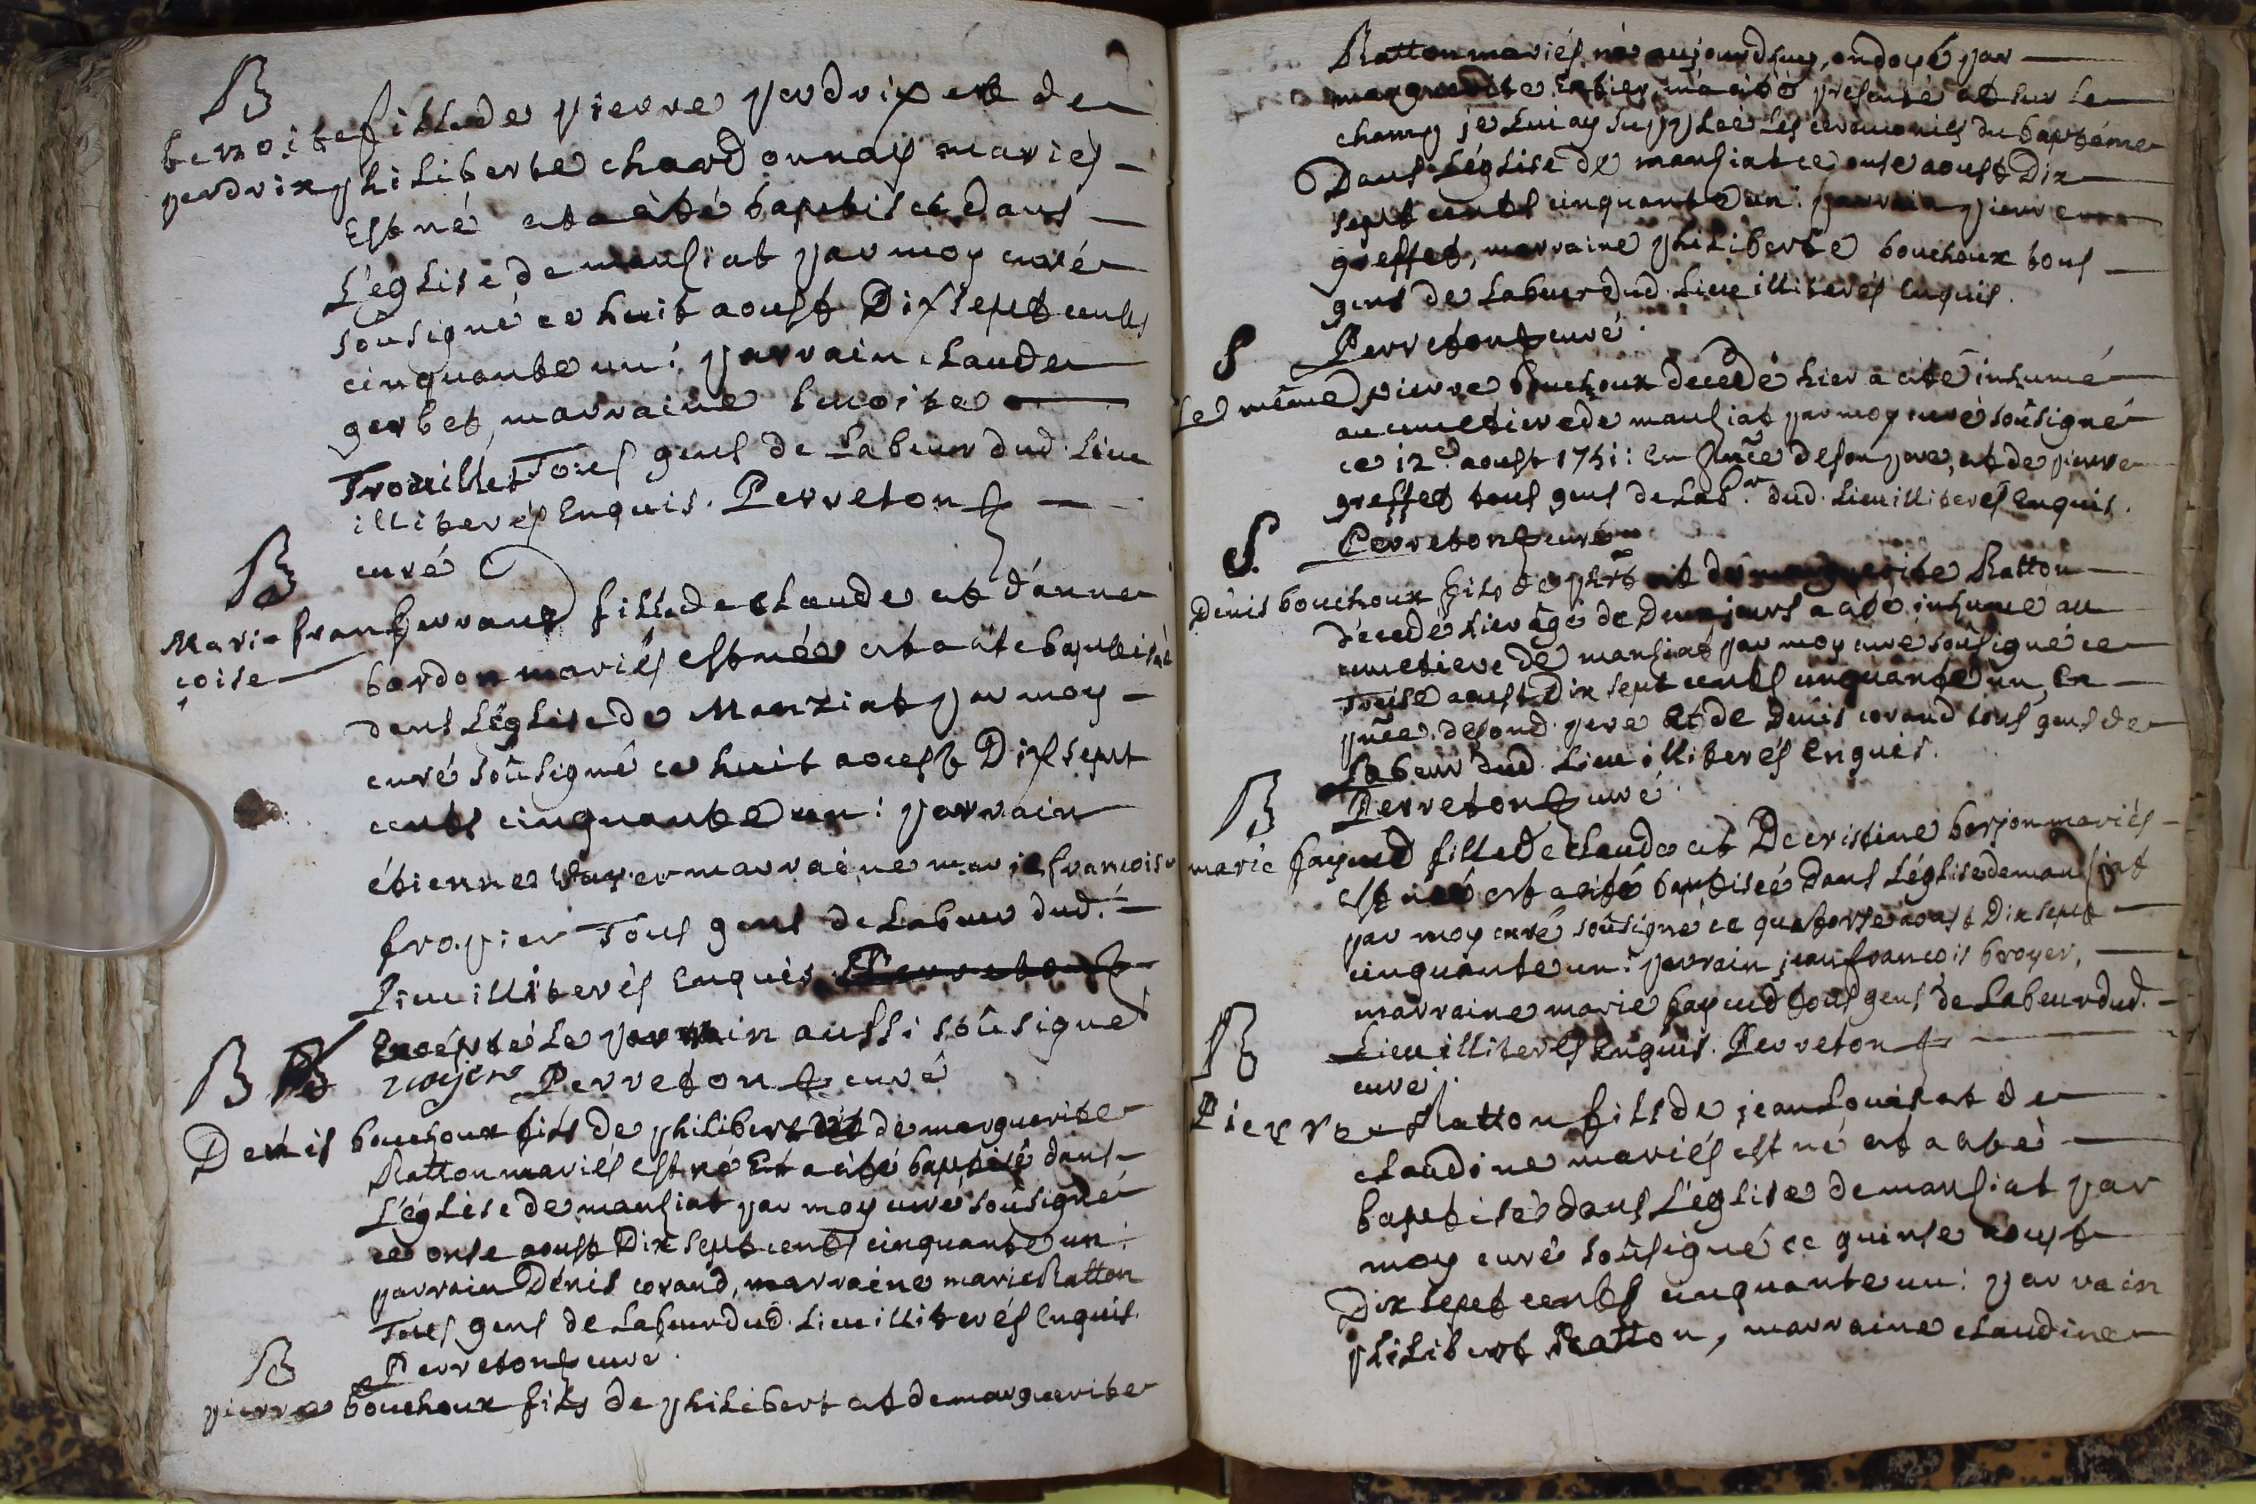 B
benoite fille de pierre perdrix et de
perdrix philiberte chardonnay mariés
Est né et a été baptisée dans
L'église de manziat par moy curé
sousigné ce huit aoust Dix sept cents
cinquante un: parrain claude
gerbet, marraine benoite
Trouillet Tous gens de Labeur dud. Lieu
illiterés Enquis. Perreton
curé
B
Marie fran ferrand fille de claude et d'anne
coise
bardon mariés est née et a été baptisée
dans L'église de Manziat par moy
curé soûsigné ce huit aoust Dix sept
cents cinquante un: parrain
étienne marraine marie francoise
fropier Tous gens de Labeur dud.
Lieu illiterés Enquis Perreton
B B Excepté Le parrain aussi soûsigné
Perreton curé
Denis bouchoux fils de philibert et de marguerite
Ratton mariés est né Et a été baptisé dans
L'église de manziat par moy curé soûsigné
ce onse aoust Dix sept cents cinquante un:
parrain Dénis corand, marraine marie Ratton
Tous gens de Labeur dud. Lieu illiterés Enquis.
Perreton curé.
B
pierre bouchoux fils de philibert et de marguerite
Ratton mariés, né aujourdhuy, ondoyé par
marguerite, m'a été presenté et sur Le
champ je Luy ay supplée Les ceremonies du baptéme
Dans L'église de manziat ce onse aoust Dix
sept cents cinquante un: parrain pierre
greffet, marraine philiberte bouchoux tous
gens de Labeur dud. Lieu illiterés Enquis.
Perreton curé.
S
Le même pierre bouchoux décedé hier a été inhumé
au cimetiere de manziat par moy curé soûsigné
ce 12e aoust 1751: En pñce de son pere, et de pierre
greffet tous gens de Labr. dud. Lieu illiterés Enquis.
Perreton curé
S.
Dénis bouchoux fils de phbt et de marguerite Ratton
décedé hier âgé de Deux jours a été inhumé au
cimetiere de manziat par moy curé soûsigné ce
Treise aoust Dix sept cents cinquante un, En
pñce de sond. pere et de Denis corand tous gens de
Labeur dud. Lieu illiterés Enquis.
Perreton curé.
B
marie fayend fille de claude et De cristine borjon mariés
est née et a été baptisée dans L'église de manziat
par moy curé soûsigné ce quatorse aoust Dix sept
cinquante un: parrain jean francois broyer,
marraine marie fayend tous gens de Labeur dud.
B
Lieu illiterés Enquis. Perreton
curé.
Pierre Ratton fils de jean Louis et de
claudine mariés est né et a été
baptisé dans L'église de manziat par
moy curé soûsigné ce quinse aoust
Dix sept cents cinquante un: parrain
philibert Ratton, marraine claudine